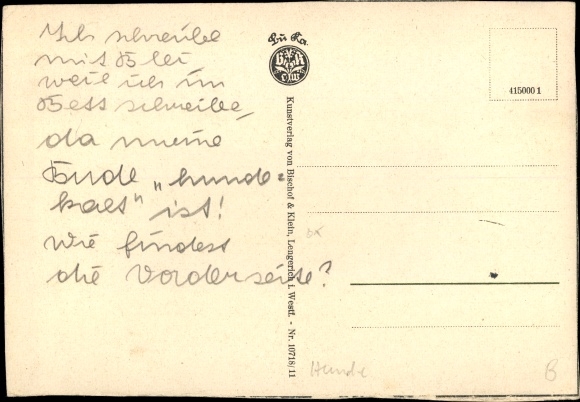 Ich schreibe
mit Blei
weil ich im
Bett schreibe,
da meine
Bude „hunde-
kalt" ist!
Wie findest
die Vorderseite?
Bu Ka
B & K
L i/W
Kunstverlag von Bischof & Klein, Lengerich i. Westf. - Nr. 10718/11
415000 1
Hunde
B